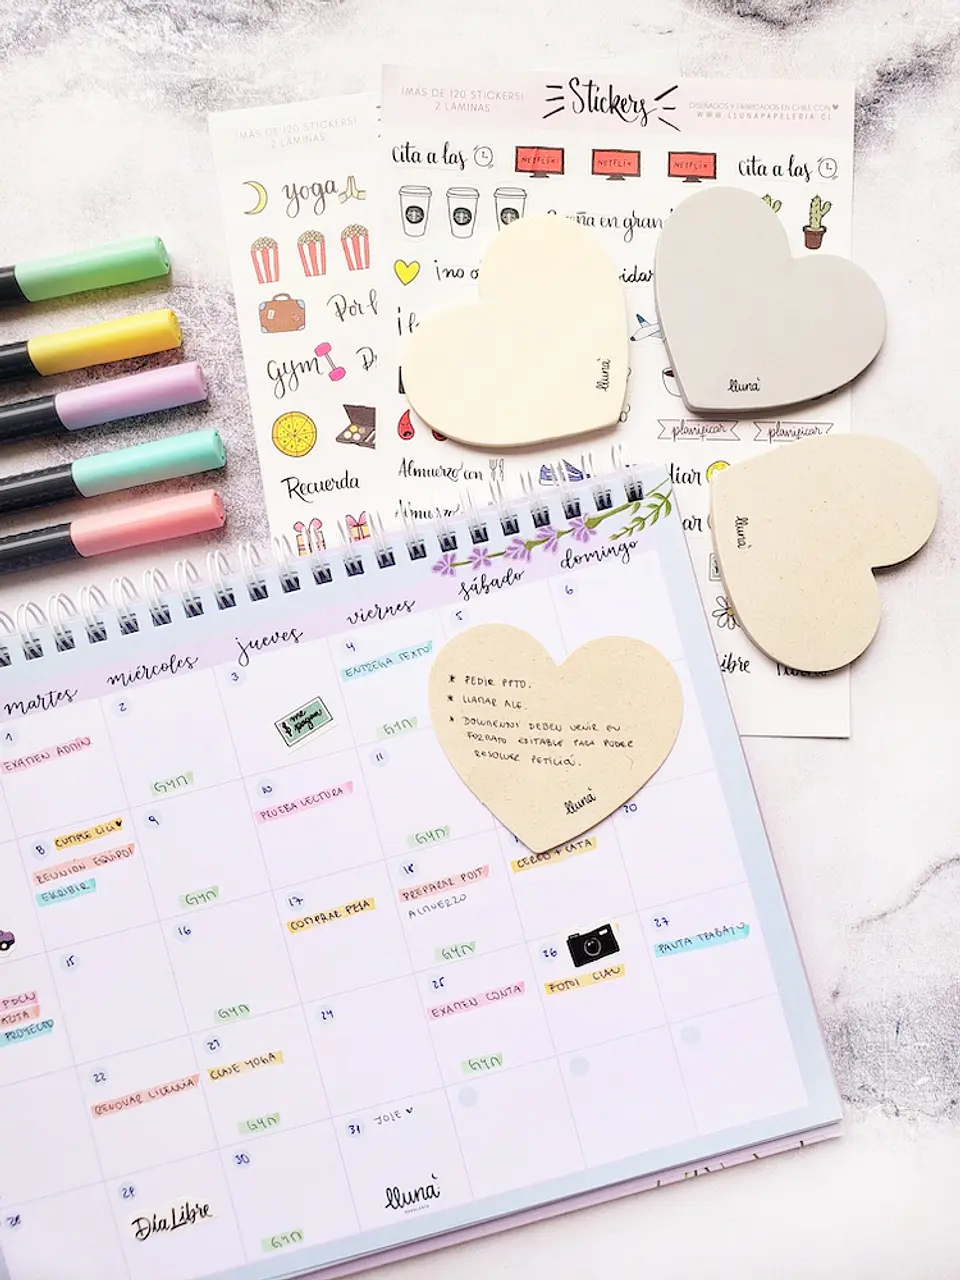 ¡MÁS DE 120 STICKERS!
2 LÁMINAS
¡MÁS DE 120 STICKERS!
2 LÁMINAS
Stickers
DISEÑADOS Y FABRICADOS EN CHILE CON ♥
WWW.LLUNAPAPELERIA.CL
yoga
gym
Recuerda
Cita a las
NETFLIX
NETFLIX
NETFLIX
Cita a las
en gran
¡no
planificar
planificar
Almuerzo con
Almuerzo
lluna
lluna
lluna
martes
miércoles
jueves
viernes
sábado
domingo
1
EXAMEN ADMIN
2
GYM
3
$ me pagan
4
ENTREGA TEXTO
GYM
5
6
* PEDIR PPTO.
* LLAMAR ALE.
* DOWNENNI DEBEN VENIR EN
FORMATO EDITABLE PARA PODER
RESOLVER PETICIÓN.
lluna
8
CUMPLE LILI ♥
REUNIÓN EQUIPO
ESCRIBIR
9
GYM
10
PRUEBA LECTURA
11
GYM
CERRO + CATA
20
15
16
GYM
17
COMPRAR PESA
18
PREPARAR POST
ALMUERZO
GYM
26
27
PAUTA TRABAJO
PAUTA
PROYECTO
22
RENOVAR LICENCIA
CLASE YOGA
GYM
24
25
EXAMEN CONTA
GYM
28
29
Día Libre
30
GYM
31
JOSE ♥
lluna
PAPELERÍA